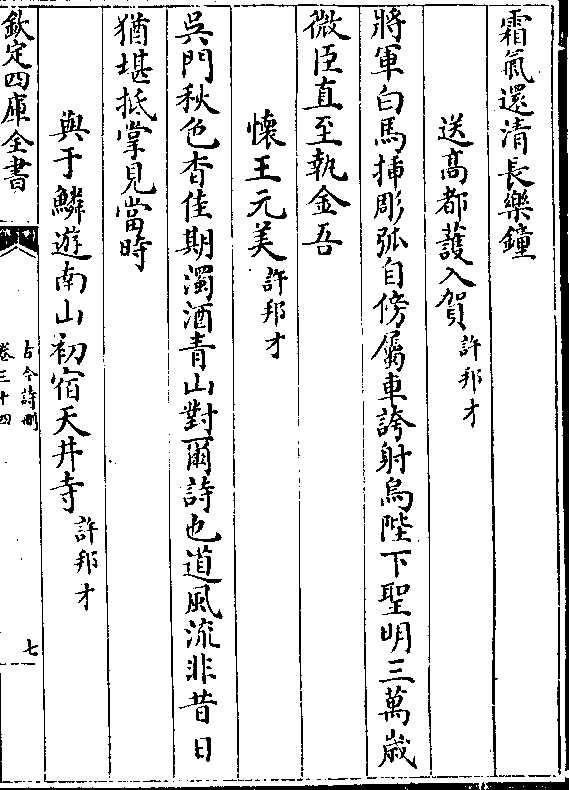 霜氣還清長樂鐘
送髙都䕶入賀許邦才
將軍白馬揷彫弧自傍屬車誇射烏陛下聖明三萬歲
微臣直至執金吾
懷王元美許邦才
吳門秋色杳佳期濁酒青山對爾詩也道風流非昔日
猶堪抵掌見當時
與于鱗遊南山初宿天井寺許邦才
欽定四庫全書
古今詩刪
卷三十四
七